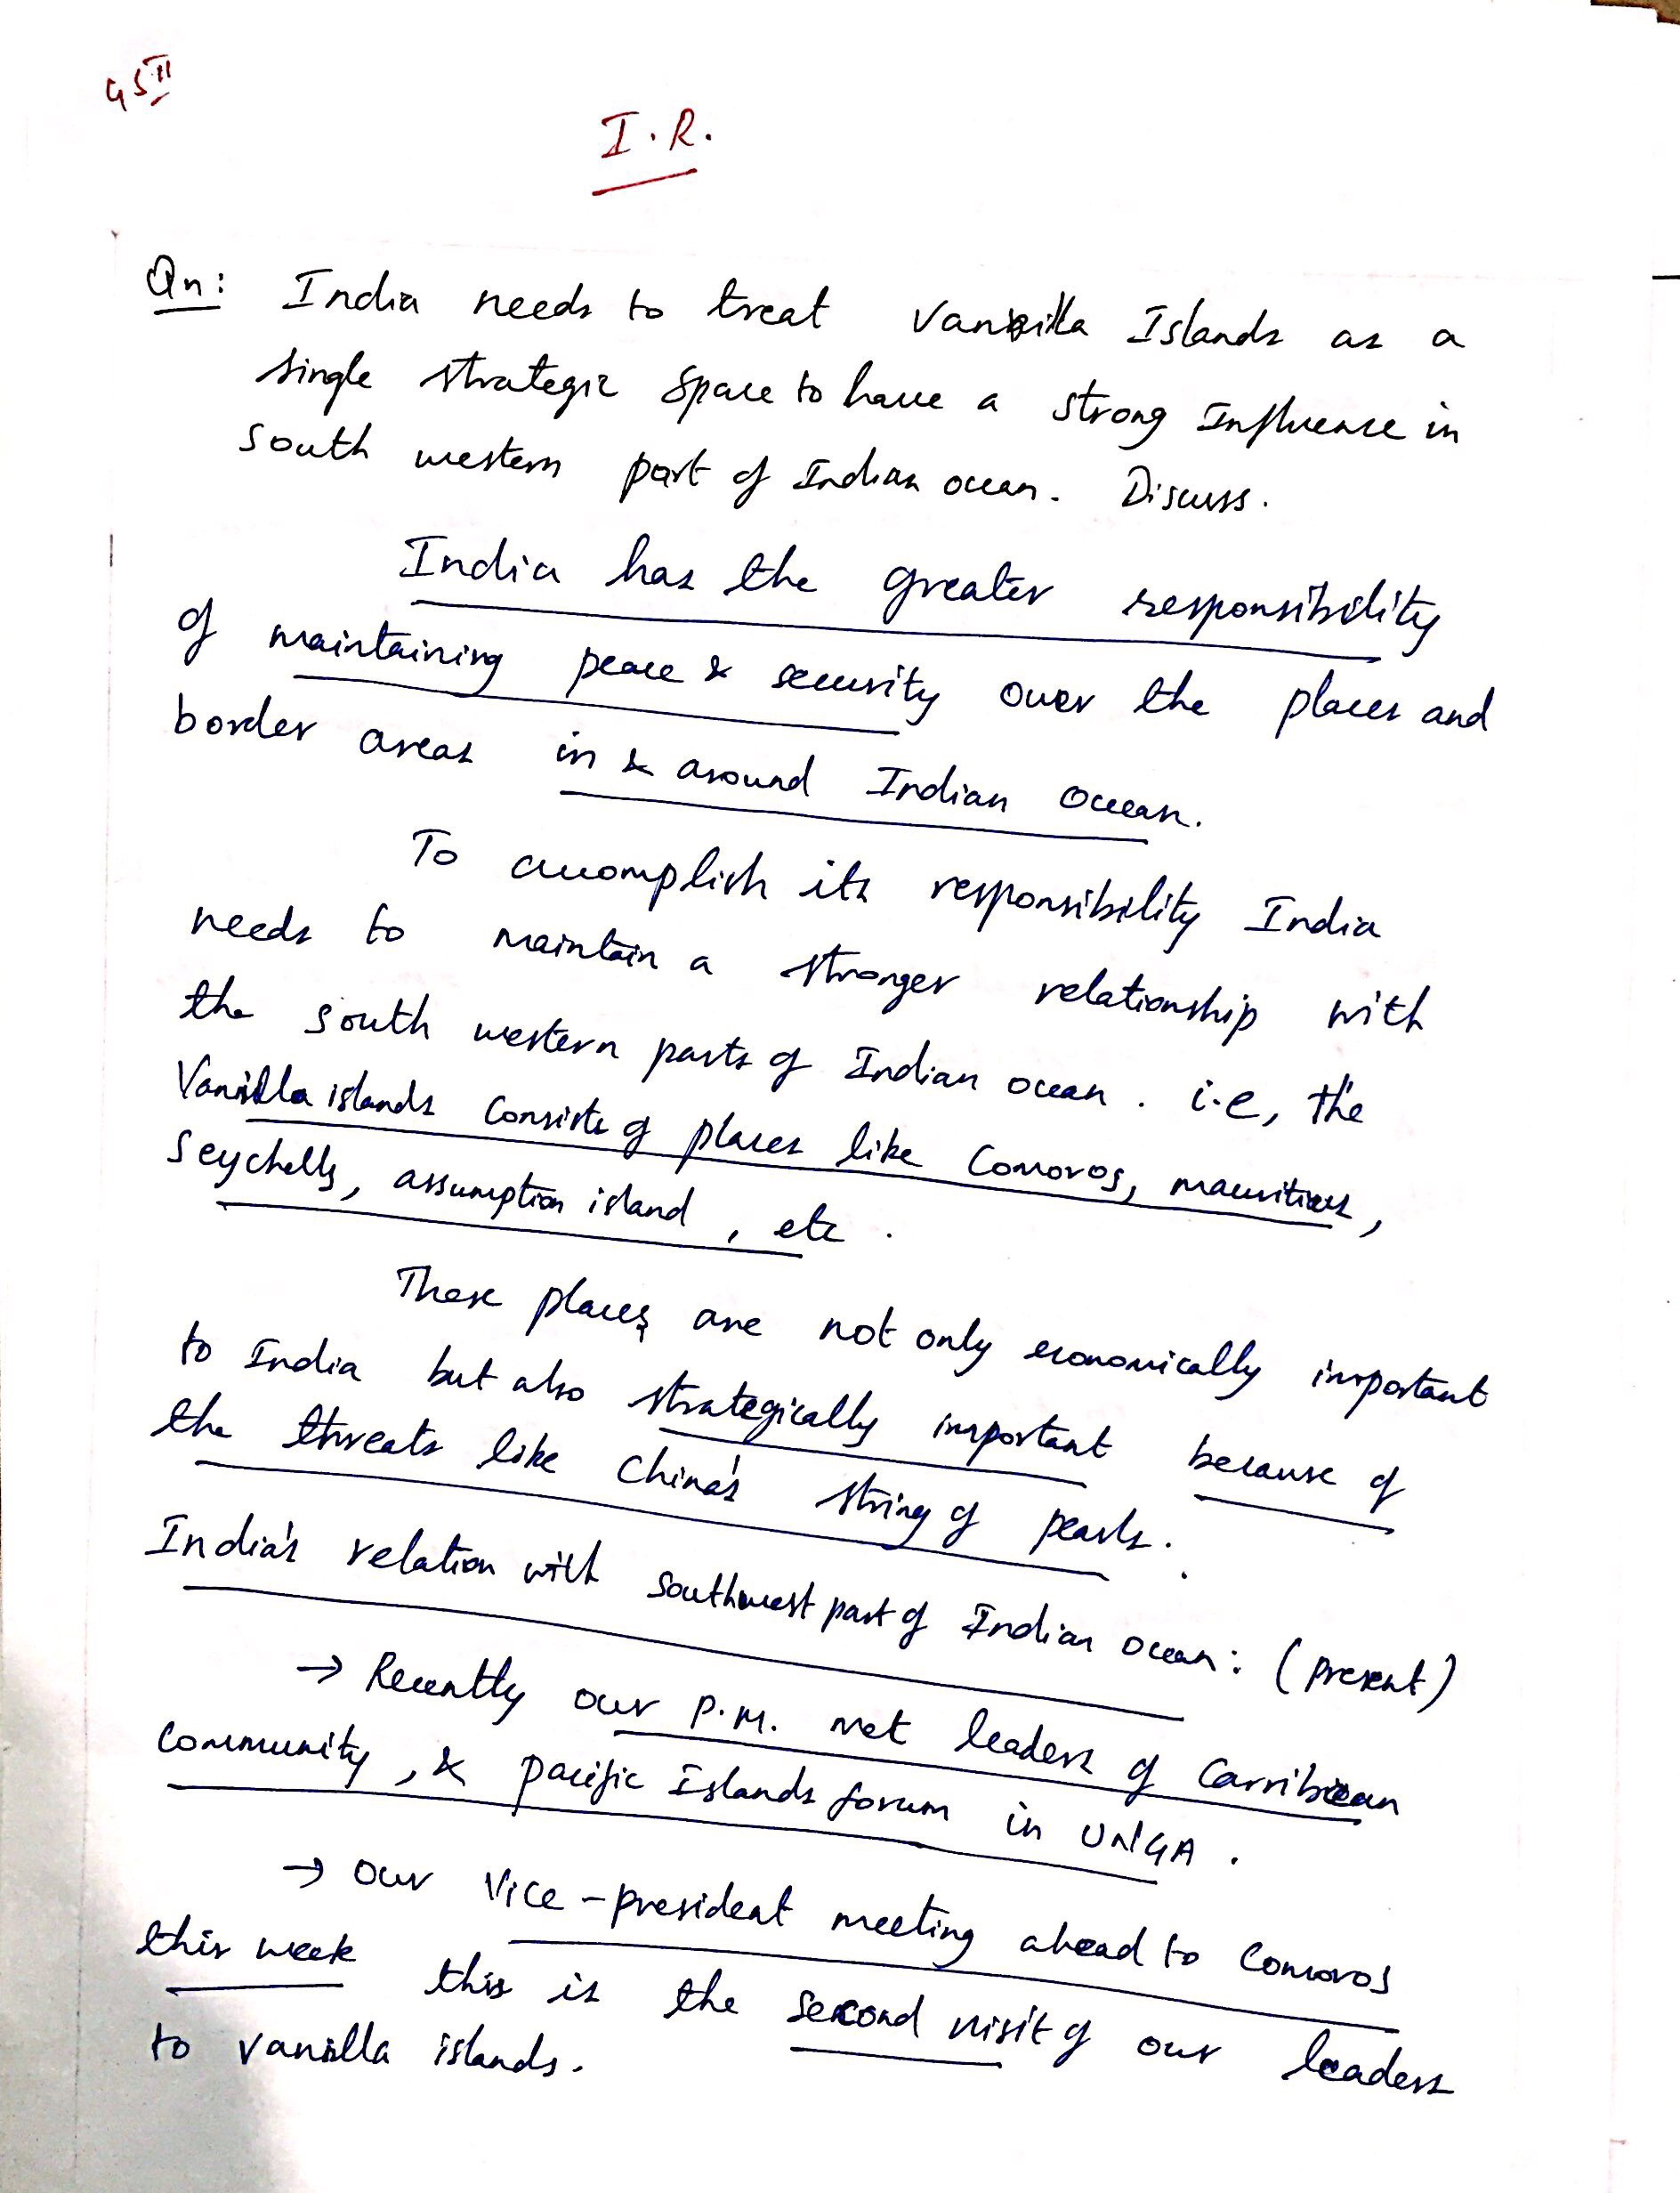 GS II
I.R.
Qn: India needs to treat Vanilla Islands as a
single strategic space to have a strong Influence in
south western part of Indian ocean. Discuss.
India has the greater responsibility
of maintaining peace & security over the places and
border areas in & around Indian Ocean.
To accomplish its responsibility India
needs to maintain a stronger relationship with
the south western parts of Indian ocean. i.e, the
Vanilla islands consists of places like Comoros, mauritius,
Seychells, assumption island, etc.
These places are not only economically important
to India but also strategically important because of
the threats like China's string of pearls.
India's relation with southwest part of Indian Ocean: (present)
→ Recently our P.M. met leaders of Carribean
Community, & pacific Islands forum in UNGA.
→ Our Vice-president meeting ahead to Comoros
this week this is the second visit of our leaders
to vanilla islands.